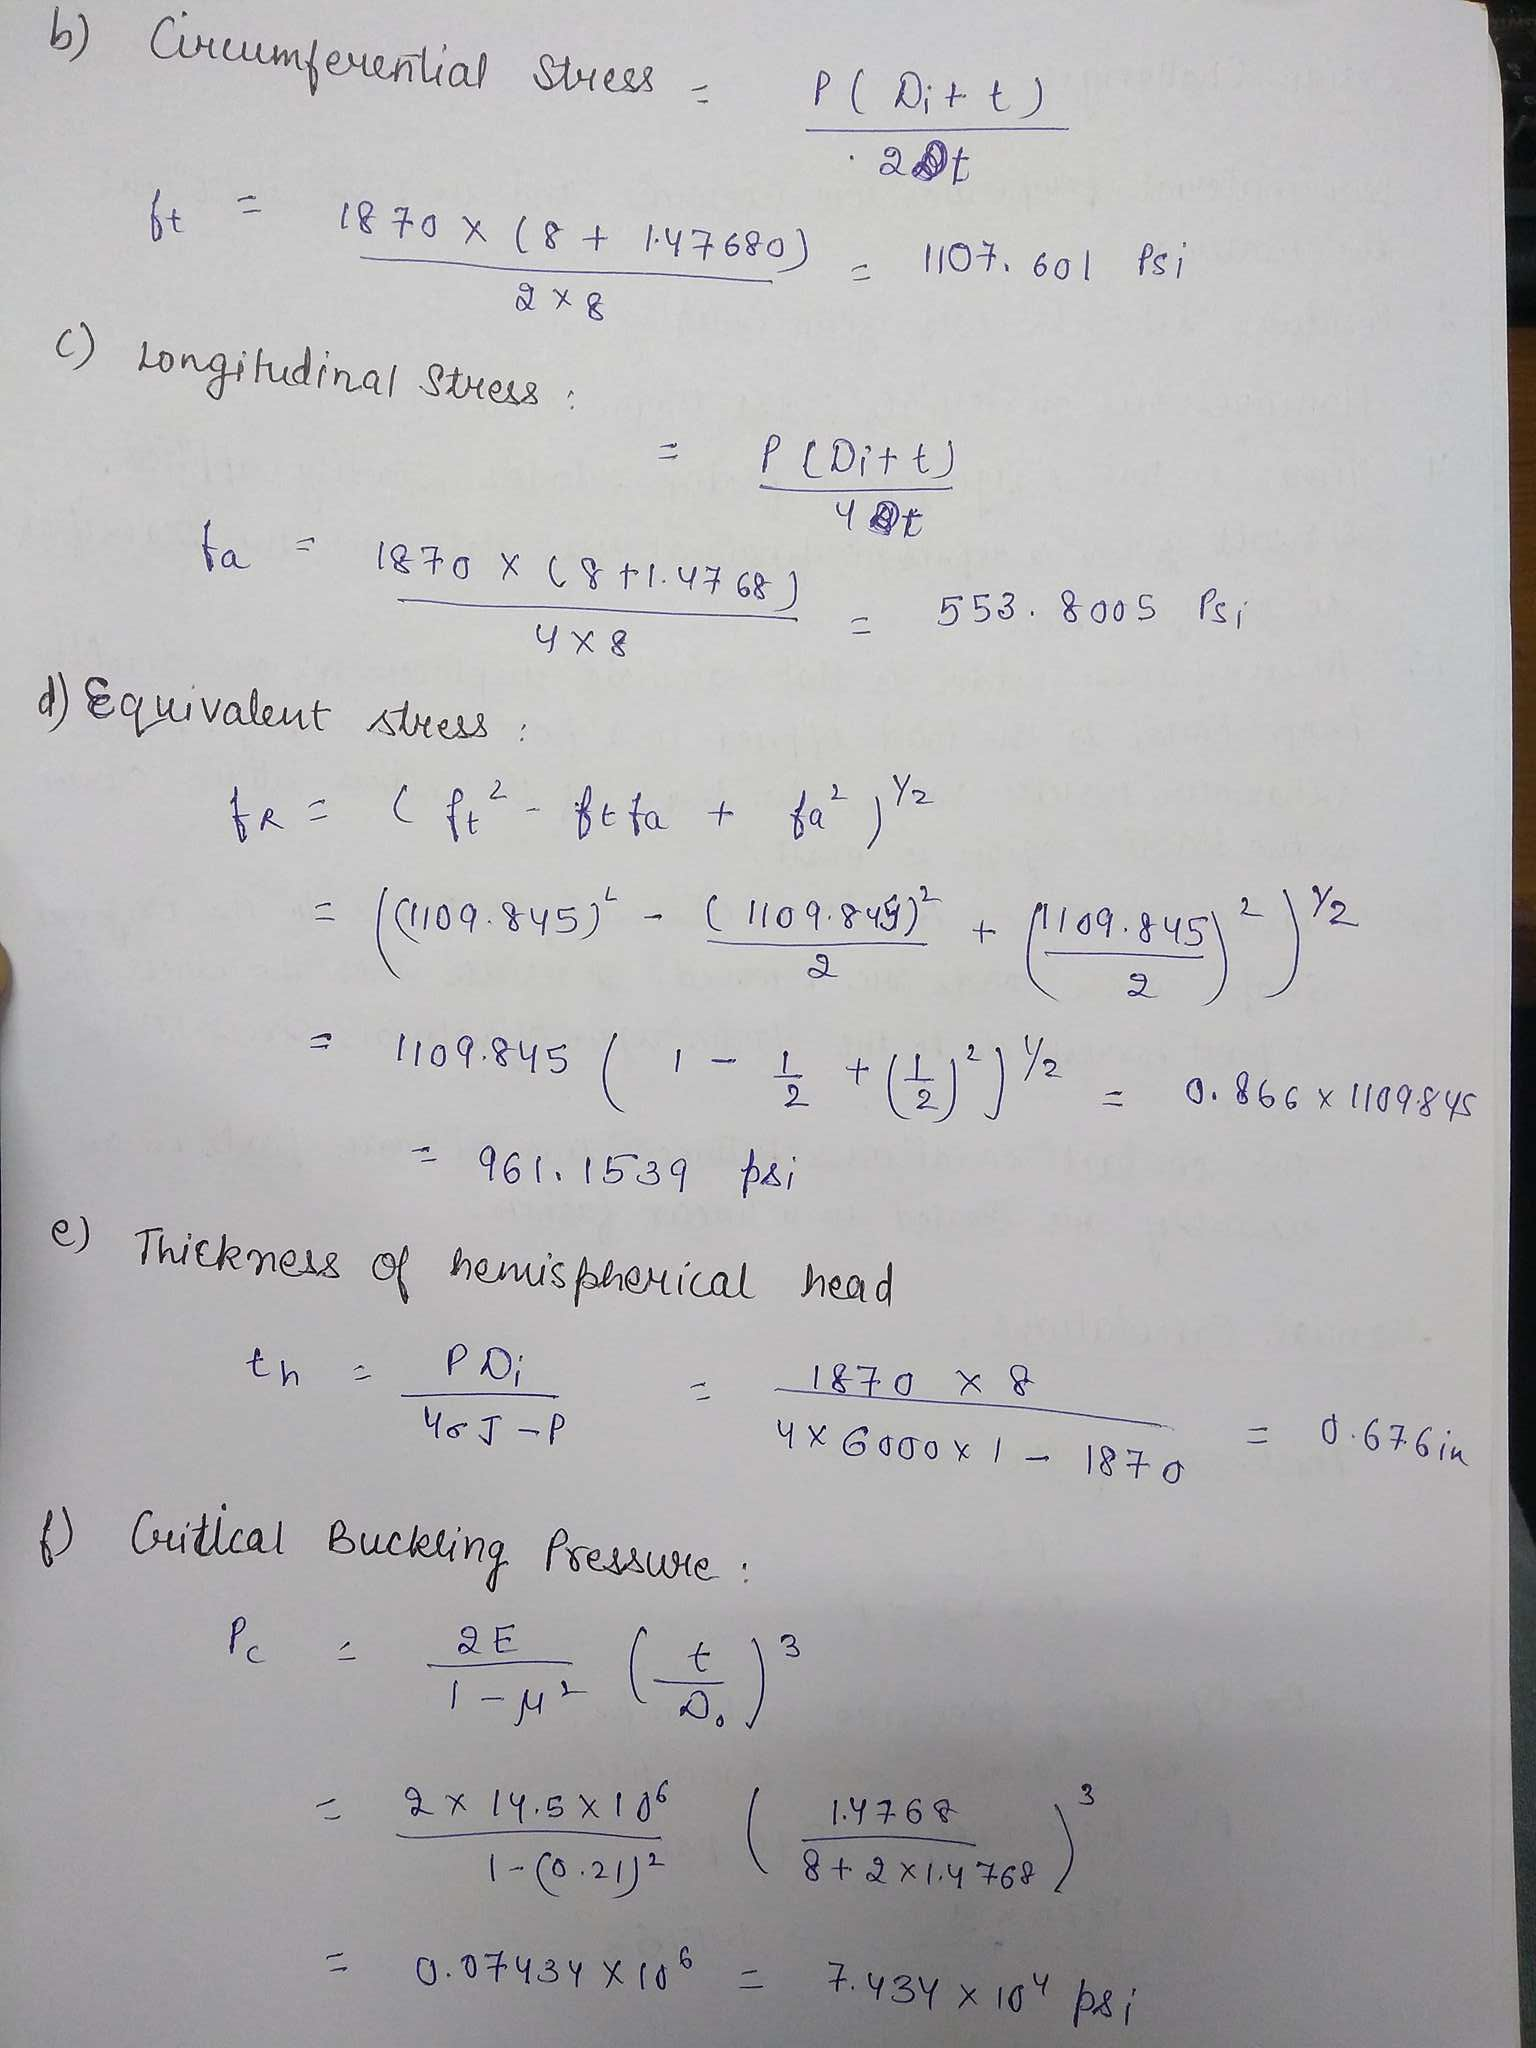 b) Circumferential Stress = P ( Di + t ) / 2t
ft = 1870 × (8 + 1.47680) / 2 × 8 = 1107.601 Psi
c) Longitudinal Stress :
= P (Di + t) / 4t
fa = 1870 × (8 + 1.4768) / 4 × 8 = 553.8005 Psi
d) Equivalent stress :
fR = ( ft² - ft fa + fa² )^1/2
= ((1109.845)² - (1109.845)² / 2 + (1109.845 / 2)²)^1/2
= 1109.845 ( 1 - 1/2 + (1/2)² )^1/2 = 0.866 × 1109.845
= 961.1539 psi
e) Thickness of hemispherical head
th = P Di / 4σJ - P = 1870 × 8 / 4 × 6000 × 1 - 1870 = 0.676 in
f) Critical Buckling Pressure :
Pc = 2E / 1 - μ² ( t / Do )³
= 2 × 14.5 × 10⁶ / 1 - (0.21)² ( 1.4768 / 8 + 2 × 1.4768 )³
= 0.07434 × 10⁶ = 7.434 × 10⁴ psi